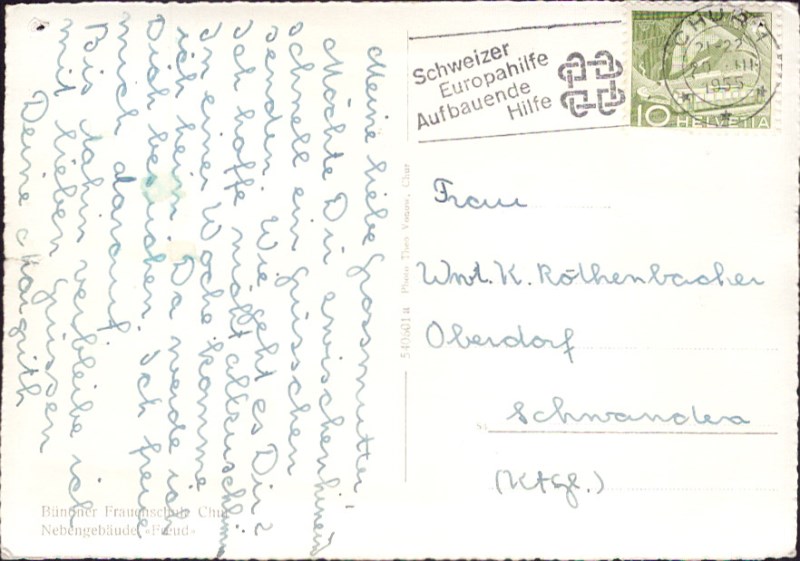 Meine liebe Grossmutter
Möchte Dir zwischenhinein
schnell ein Grüsschen
senden. Wie geht es Dir?
Ich hoffe nicht allzuschlimm
In einer Woche komme
ich heim. Da werde ich
Dich besuchen. Ich freue
mich darauf.
Bis dahin verbleibe ich
mit lieben Grüssen
Deine Margrith
Bündner Frauenschule Chur
Nebengebäude «Freud»
540601a Photo Theo Vonow, Chur
Schweizer
Europahilfe
Aufbauende
Hilfe
CHUR 1
21-22
1955
10 HELVETIA
Frau
Wwt. K. Röthenbacher
Oberdorf
Schwanden
(Kt. Gl.)